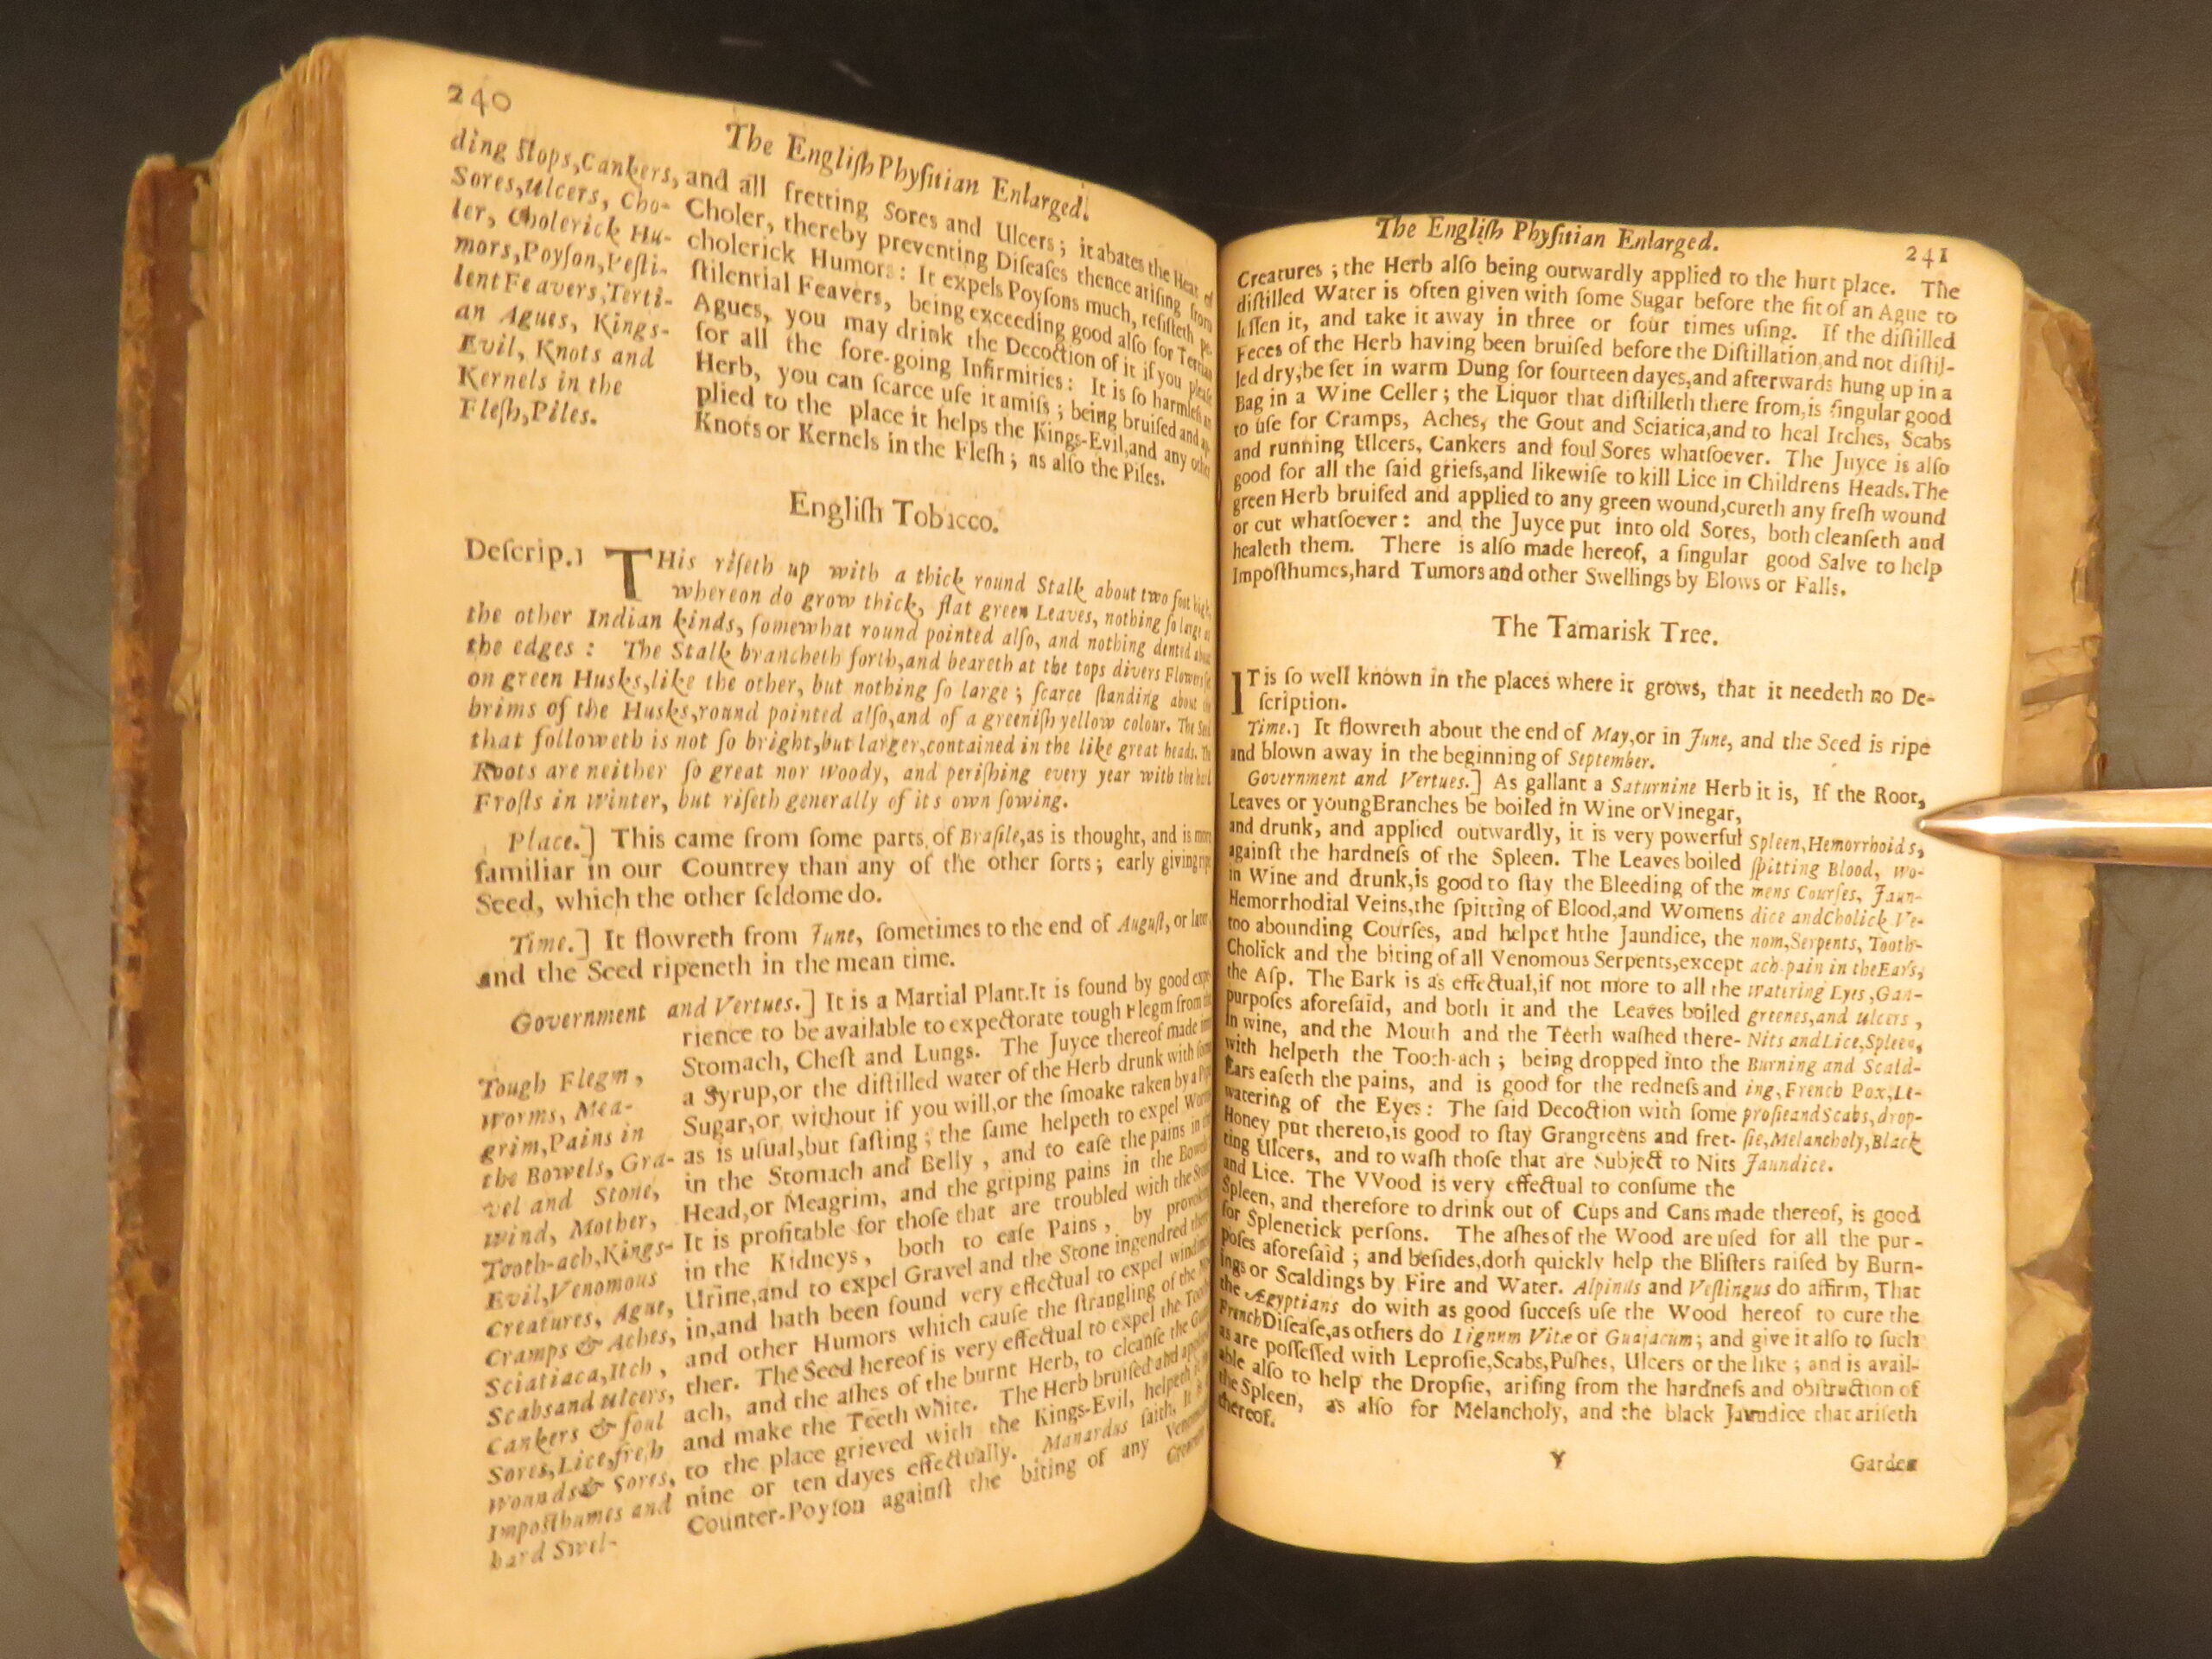 240
The Engliſh Phyſitian Enlarged.
ding ſlops,Cankers,
Sores,Ulcers, Cho-
ler, Cholerick Hu-
mors,Poyſon,Peſti-
lent Feavers,Terti-
an Agues, Kings-
Evil, Knots and
Kernels in the
Fleſh,Piles.
and all fretting Sores and Ulcers; it abates the Heat of
Choler, thereby preventing Diſeaſes thence ariſing from
cholerick Humors: It expels Poyſons much, reſiſteth pe-
ſtilential Feavers, being exceeding good alſo for Tertian
Agues, you may drink the Decoction of it if you pleaſe
for all the fore-going Infirmities: It is ſo harmleſs an
Herb, you can ſcarce uſe it amiſs; being bruiſed and ap-
plied to the place it helps the Kings-Evil,and any other
Knots or Kernels in the Fleſh; as alſo the Piles.
Engliſh Tobacco.
Deſcrip.] THis riſeth up with a thick round Stalk about two foot high,
whereon do grow thick, flat green Leaves, nothing ſo large as
the other Indian kinds, ſomewhat round pointed alſo, and nothing dented about
the edges: The Stalk brancheth forth,and beareth at the tops divers Flowers ſet
on green Husks,like the other, but nothing ſo large; ſcarce ſtanding above the
brims of the Husks,round pointed alſo,and of a greeniſh yellow colour. The Seed
that followeth is not ſo bright,but larger,contained in the like great heads. The
Roots are neither ſo great nor woody, and periſhing every year with the hard
Froſts in Winter, but riſeth generally of its own ſowing.
Place.] This came from ſome parts of Braſile,as is thought, and is more
familiar in our Countrey than any of the other ſorts; early giving ripe
Seed, which the other ſeldome do.
Time.] It flowreth from June, ſometimes to the end of Auguſt, or later
and the Seed ripeneth in the mean time.
Government and Vertues.] It is a Martial Plant.It is found by good expe-
rience to be available to expectorate tough Flegm from the
Stomach, Cheſt and Lungs. The Juyce thereof made into
a Syrup,or the diſtilled water of the Herb drunk with ſome
Sugar,or without if you will,or the ſmoake taken by a Pipe
as is uſual,but faſting; the ſame helpeth to expel Worms
in the Stomach and Belly, and to eaſe the pains in the
Head,or Meagrim, and the griping pains in the Bowels
It is profitable for thoſe that are troubled with the Stone
in the Kidneys, both to eaſe Pains, by provoking
Urine,and to expel Gravel and the Stone ingendred there-
in,and hath been found very effectual to expel windineſs
and other Humors which cauſe the ſtrangling of the Mo-
ther. The Seed hereof is very effectual to expel the Tooth-
ach, and the aſhes of the burnt Herb, to cleanſe the Gums
and make the Teeth white. The Herb bruiſed and applied
to the place grieved with the Kings-Evil, helpeth it in
nine or ten dayes effectually. Manardus ſaith, It is a
Counter-Poyſon againſt the biting of any Venemous
Creatures
Tough Flegm,
Worms, Mea-
grim,Pains in
the Bowels, Gra-
vel and Stone,
Wind, Mother,
Tooth-ach,Kings-
Evil,Venomous
Creatures, Ague,
Cramps & Aches,
Sciatiaca,Itch,
Scabs and Ulcers,
Cankers & foul
Sores,Lice,freſh
Wounds & Sores,
Impoſthumes and
hard Swel-
The Engliſh Phyſitian Enlarged.
241
Creatures; the Herb alſo being outwardly applied to the hurt place. The
diſtilled Water is often given with ſome Sugar before the fit of an Ague to
leſſen it, and take it away in three or four times uſing. If the diſtilled
Feces of the Herb having been bruiſed before the Diſtillation,and not diſtil-
led dry,be ſet in warm Dung for fourteen dayes,and afterwards hung up in a
Bag in a Wine Celler; the Liquor that diſtilleth there from,is ſingular good
to uſe for Cramps, Aches, the Gout and Sciatica,and to heal Itches, Scabs
and running Ulcers, Cankers and foul Sores whatſoever. The Juyce is alſo
good for all the ſaid griefs,and likewiſe to kill Lice in Childrens Heads.The
green Herb bruiſed and applied to any green wound,cureth any freſh wound
or cut whatſoever: and the Juyce put into old Sores, both cleanſeth and
healeth them. There is alſo made hereof, a ſingular good Salve to help
Impoſthumes,hard Tumors and other Swellings by Blows or Falls.
The Tamarisk Tree.
IT is ſo well known in the places where it grows, that it needeth no De-
ſcription.
Time.] It flowreth about the end of May,or in June, and the Seed is ripe
and blown away in the beginning of September.
Government and Vertues.] As gallant a Saturnine Herb it is, If the Root,
Leaves or young Branches be boiled in Wine or Vinegar,
and drunk, and applied outwardly, it is very powerful
againſt the hardneſs of the Spleen. The Leaves boiled
in Wine and drunk,is good to ſtay the Bleeding of the
Hemorrhodial Veins,the ſpitting of Blood,and Womens
too abounding Courſes, and helpet hthe Jaundice, the
Cholick and the biting of all Venomous Serpents,except
the Aſp. The Bark is as effectual,if not more to all the
purpoſes aforeſaid, and both it and the Leaves boiled
in wine, and the Mouth and the Teeth waſhed there-
with helpeth the Tooth-ach; being dropped into the
Ears eaſeth the pains, and is good for the redneſs and
watering of the Eyes: The ſaid Decoction with ſome
Honey put thereto,is good to ſtay Grangreens and fret-
ting Ulcers, and to waſh thoſe that are Subject to Nits
and Lice. The VVood is very effectual to conſume the
Spleen, and therefore to drink out of Cups and Cans made thereof, is good
for Splenetick perſons. The aſhes of the Wood are uſed for all the pur-
poſes aforeſaid; and beſides,doth quickly help the Bliſters raiſed by Burn-
ings or Scaldings by Fire and Water. Alpinus and Veſlingus do affirm, That
the Ægyptians do with as good ſucceſs uſe the Wood hereof to cure the
French Diſeaſe,as others do Lignum Vitæ or Guajacum; and give it alſo to ſuch
as are poſſeſſed with Leproſie,Scabs,Puſhes, Ulcers or the like; and is avail-
able alſo to help the Dropſie, ariſing from the hardneſs and obſtruction of
the Spleen, as alſo for Melancholy, and the black Jaundice that ariſeth
thereof.
Spleen,Hemorrhoids,
ſpitting Blood, wo-
mens Courſes, Jaun-
dice and Cholick Ve-
nom,Serpents, Tooth-
ach pain in the Ears,
watering Eyes,Gan-
greenes,and Ulcers,
Nits and Lice,Spleen,
Burning and Scald-
ing,French Pox,Le-
proſie and Scabs,drop-
ſie,Melancholy,Black
Jaundice.
Y
Garden